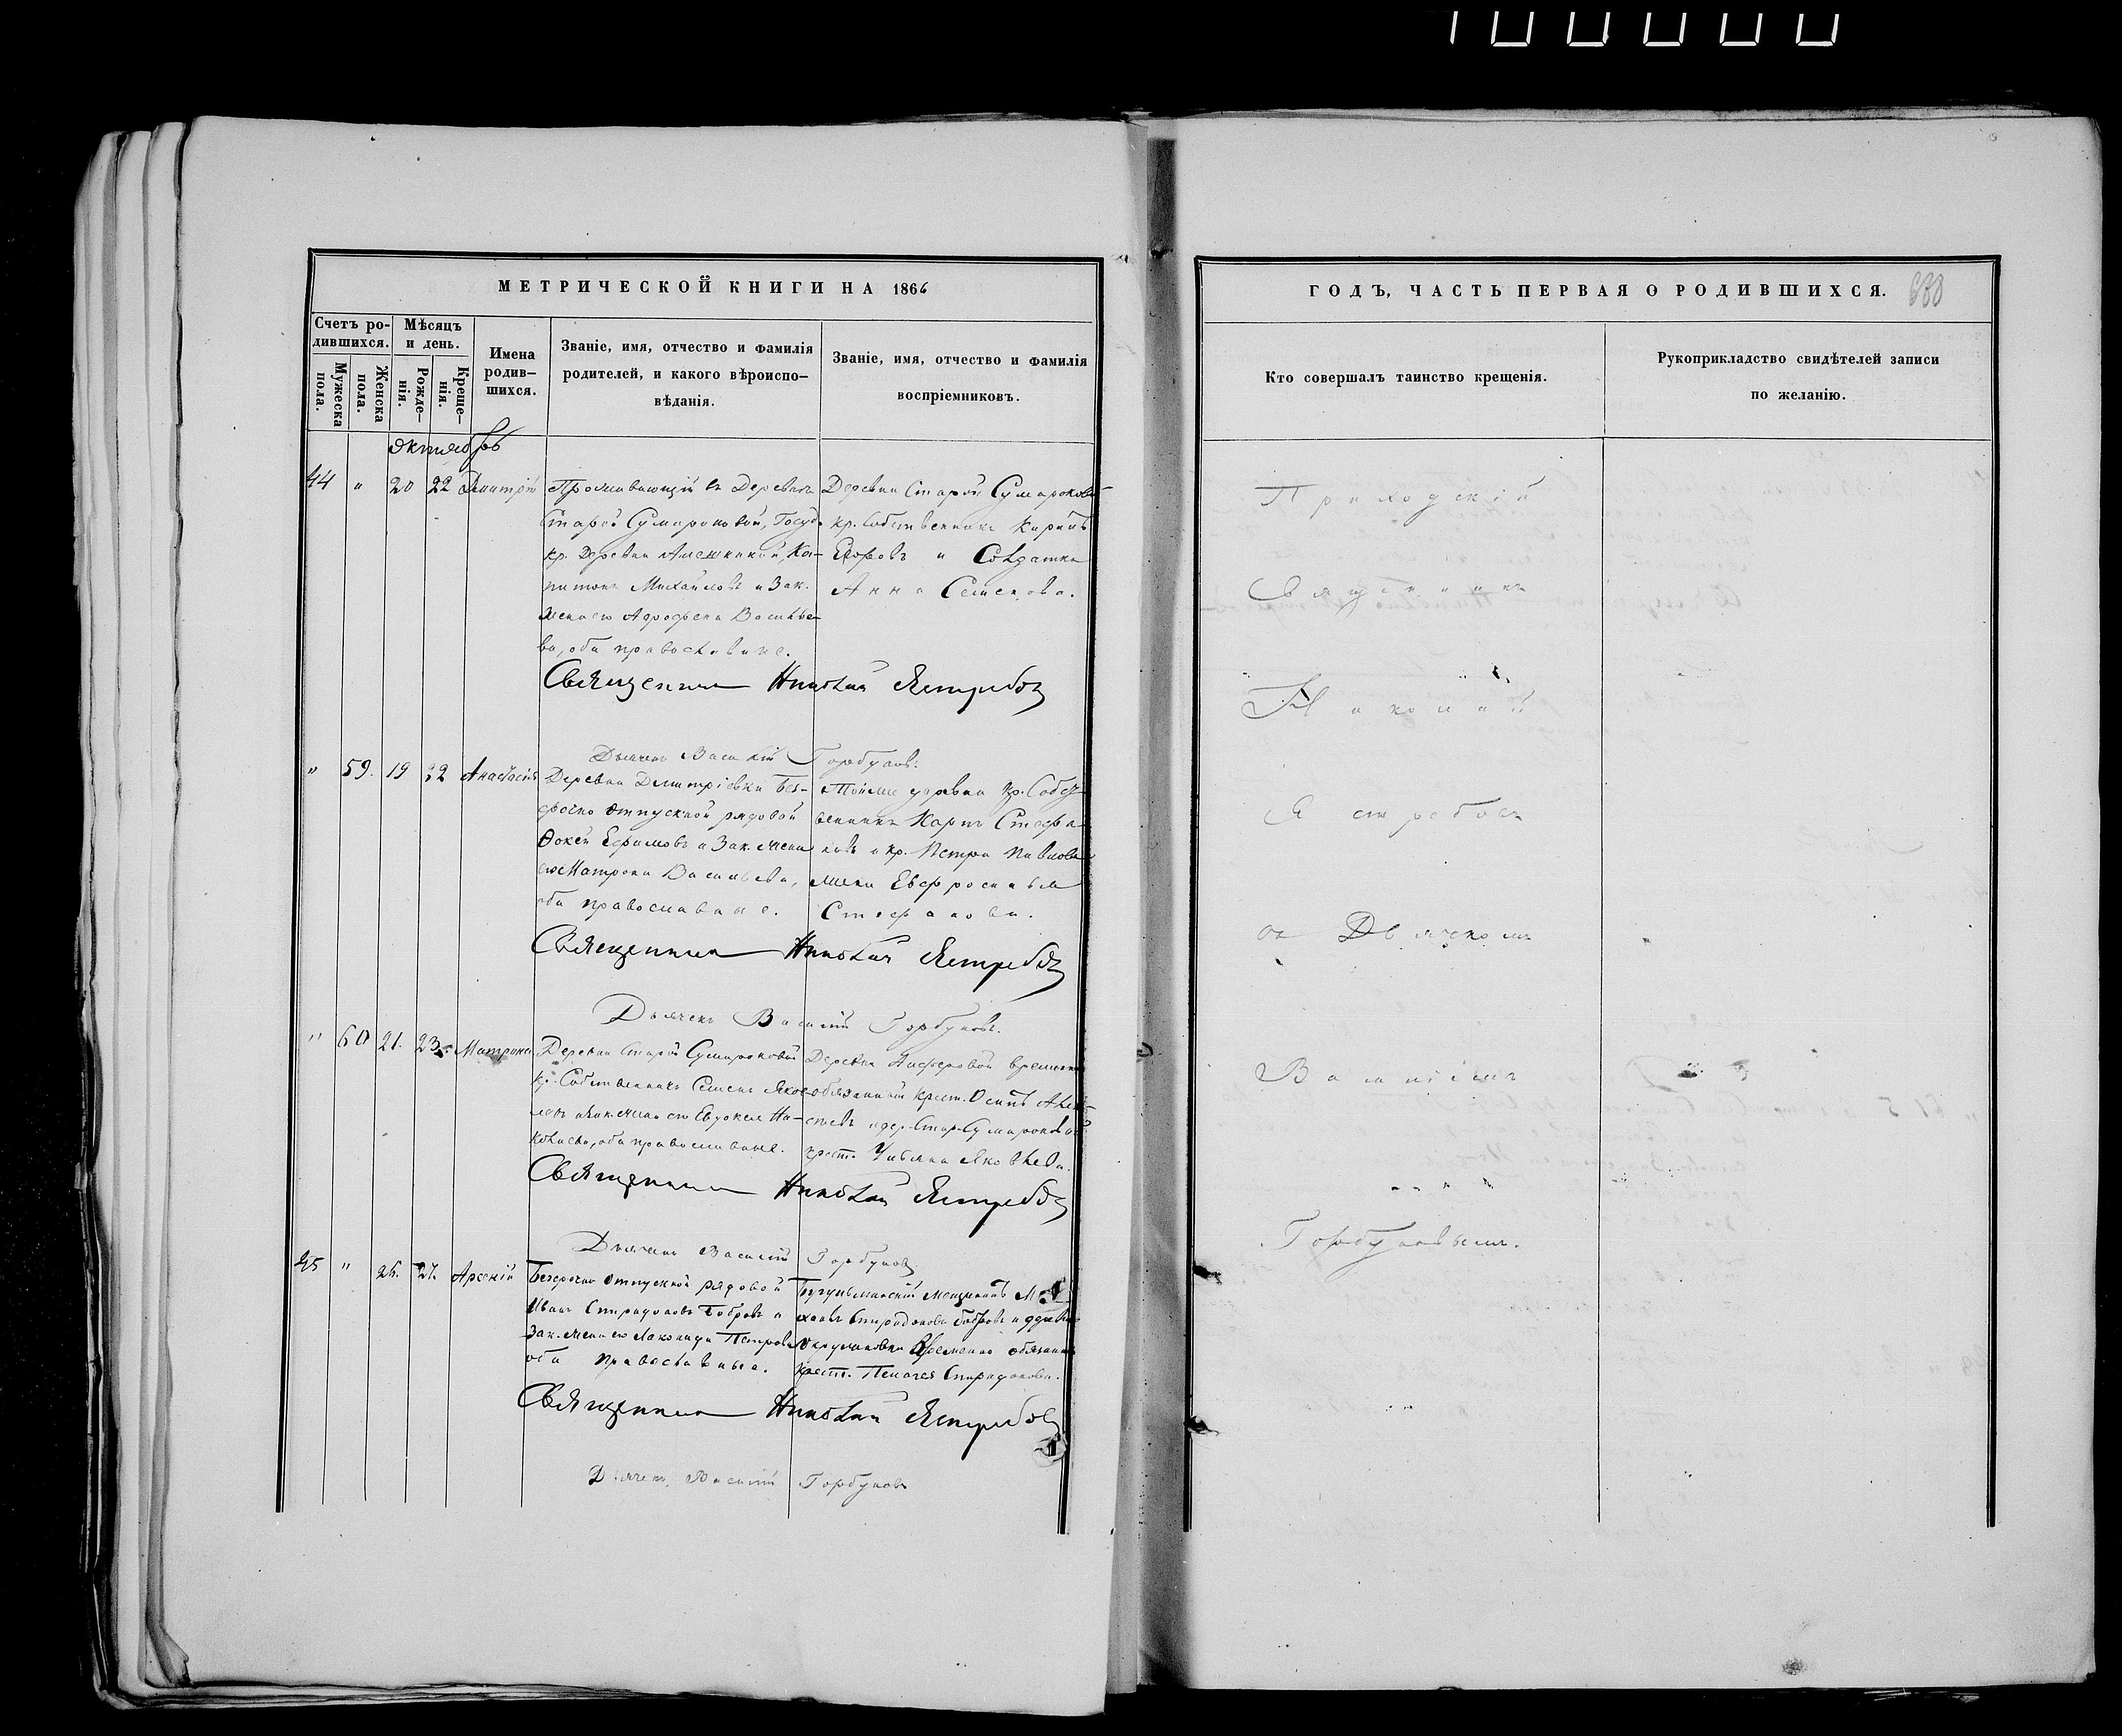 МЕТРИЧЕСКОЙ КНИГИ НА 1866
Счетъ ро-
дившихся.
Мужеска
пола.
Женска
пола.
Мѣсяцъ
и день.
Рожде-
нія.
Креще-
нія.
Имена
родив-
шихся.
Званіе, имя, отчество и фамилія
родителей, и какого вѣроиспо-
вѣданія.
Званіе, имя, отчество и фамилія
воспріемниковъ.
Октябрь
44 " 20 22 Дмитрій
Проживающій въ Деревнѣ
Старой Сумароковой, Госуд.
кр. Деревни Ка-
питонъ Михайловъ и Зак.
жена его Агрофена Василье-
ва, оба православные.
Деревни Старой Сумароковой
кр. Собственникъ
Егоровъ и Солдатка
Анна Семенова.
Священникъ Николай Ястребовъ
Дьячекъ Василій Горбуновъ.
" 59. 19 22 Анастасія
Деревни Дмитріевки Без-
срочно отпускной рядовой
Ѳокей Ефимовъ и Зак. жена
его Матрона Васильева,
оба православные.
деревни кр. Собст-
венникъ Карпъ Стефа-
новъ и кр. Петра Павлова
жена Евфросинья
Стефанова.
Священникъ Николай Ястребовъ
Дьячекъ Василій Горбуновъ.
" 60 21. 23. Матрона
Деревни Старой Сумароковой
кр. Собственникъ Семенъ Яков-
левъ и Зак. жена его Евдокея Ни-
колаева, оба православные.
Деревни временно
обязанный крест. Осипъ
и дер. Стар. Сумароковой
крест. Ульяна Яковлева.
Священникъ Николай Ястребовъ
Дьячекъ Василій Горбуновъ
45 " 26. 27. Арсеній
Безсрочно отпускной рядовой
Иванъ Спиридоновъ Бобровъ и
Зак. жена его Петрова
оба православные.
Бугульминскій мещанинъ
Спиридоновъ Бобровъ и
временно обязанн.
крест. Пелагея Спиридонова.
Священникъ Николай Ястребовъ
Дьячекъ Василій Горбуновъ
ГОДЪ, ЧАСТЬ ПЕРВАЯ О РОДИВШИХСЯ.
Кто совершалъ таинство крещенія.
Рукоприкладство свидѣтелей записи
по желанію.
Приходскій
Священникъ
Николай
Ястребовъ
съ Дьячкомъ
Василіемъ
Горбуновымъ.